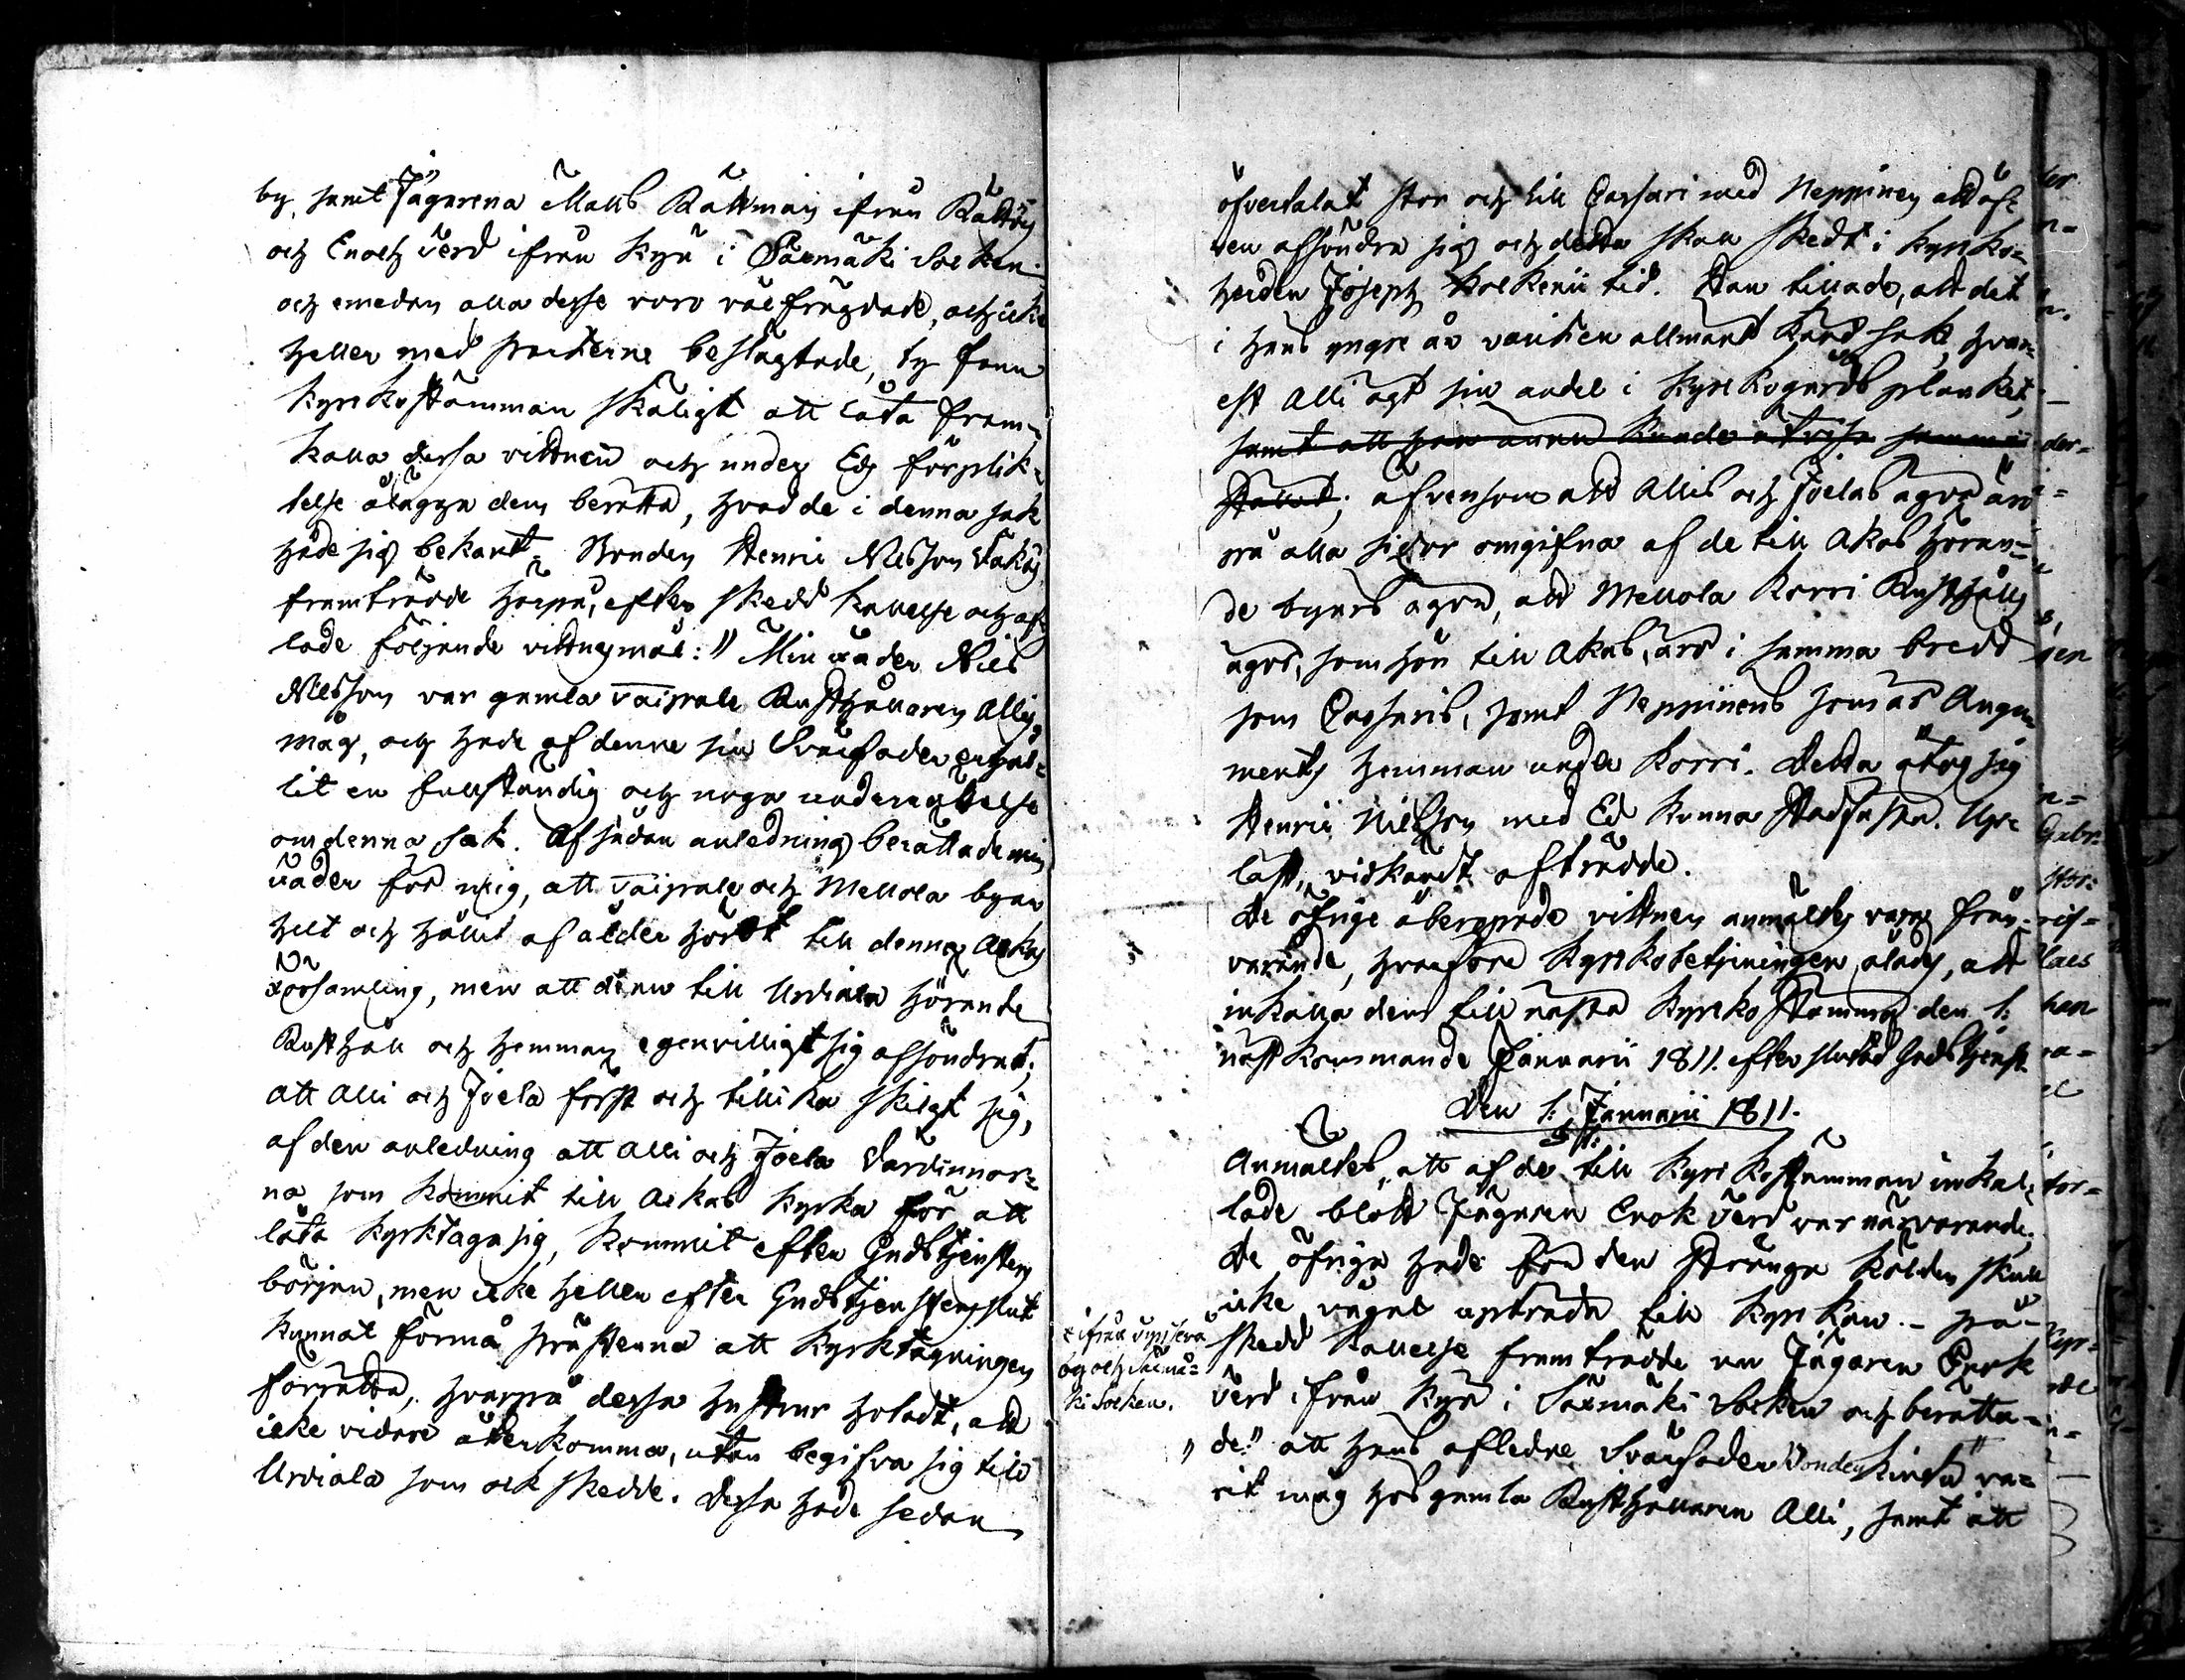 by, samt Jägarena Matts Rättman ifrån Rättög
och Enoch Verd ifrån Kyrö i Säxmäki Socken:
och emedan alla desse voro välfrägdade, och icke
heller med parterne beslägtade, ty fann
Kyrkostämman skäligt att låta fram-
kalla dessa vittnen och under Eds förplik-
telse ålägga dem berätta, hvad de i denna sak
hade sig bekant. Bonden Henric Nilsson
framträdde härpå, efter skedd kallelse och af-
lade följande vittnesmål: " Min Fader Nils
Nilsson var gamla Vaiprala Rusthållaren Allis
måg, och hade af denne sin Svärfader erhål-
lit en fullständig och noga underrättelse
om denna sak. Af sådan anledning berättade min
Fader för mig, att Vaiprala och Mellola byar
helt och hållit af ålder hördt till denna Ackas
Församling, men att de nu till Urdiala hörande
Rusthåll och Hemman egenvilligt sig afsöndrat;
att Alli och Joela först och tillika skilgt sig,
af den anledning att Alli och Joela Värdinnor-
na som kommit till Ackas Kyrka för att
låta kyrktaga sig, kommit efter Gudstjenstens
början, men icke heller efter Gudstjenstens slut
kunnat förmå prästerna att kyrktagningen
förrätta, hvarpå dessa hustrur hotadt, att
icke vidare återkomma, utan begifva sig till
Urdiala som ock skedde. Dessa hade sedan
öfvertalat Stor och lill Passari med Neppinen att äf-
ven afsöndra sig och detta skall skedt i Kyrko-
herden Joseph Kolkenii tid. Han tillade, att det
i hans yngre år varit en allmänt känd sak, hvar-
est Alli ägt sin andel i Kyrkogårds planket,
samt att han ännu kunde utvisa samma
stället; äfvensom att Allis och Joelas ägor äro
på alla sidor omgifna af de till Akas höran-
de byars ägor, att Mellola Korri Rusthålls
ägor, som hör till Akas, äro i samma bredd
som Passaris, samt Neppinens som är Augu-
ments hemman under Korri. Detta åtog sig
Henric Nilsson med Ed kunna stadfästa. Upp-
läst, vidkändt afträdde.
De öfrige åberopade vittnen anmältes vara från-
varande, hvarföre Kyrkobetjeningen ålades, att
inkalla dem till nästa Kyrkostämma den 1:
nästkommande Januarii 1811. efter slutad Gudstjenst.
Den 1: Januarii 1811.
Anmältes, att af de till Kyrkostämman inkal-
lade blott Jägaren Enok Verd var närvarande,
de öfriga hade för den stränga kölden skull
icke vågat upträda till Kyrkan. – På
skedd kallelse framträdde nu Jägaren Enok
Verd ifrån Kyrö i Säxmäki Socken och berätta-
" de:" att hans afledne Svärfader Bonden va-
rit måg hos gamla Rusthållaren Alli, samt att
ifrån
by och Säxmä-
ki Socken.